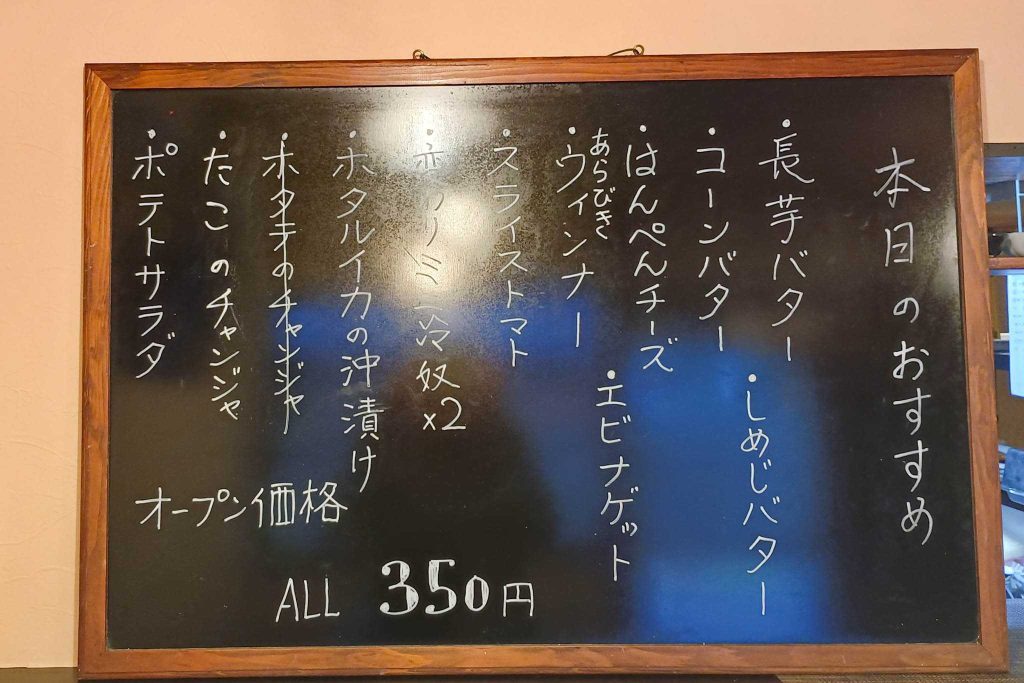 本日のおすすめ
・長芋バター
・しめじバター
・コーンバター
・はんぺんチーズ
・エビナゲット
・あらびきウィンナー
・スライストマト
冷奴×2
・ホタルイカの沖漬け
・ホタテのチャンジャ
・たこのチャンジャ
・ポテトサラダ
オープン価格
ALL 350円